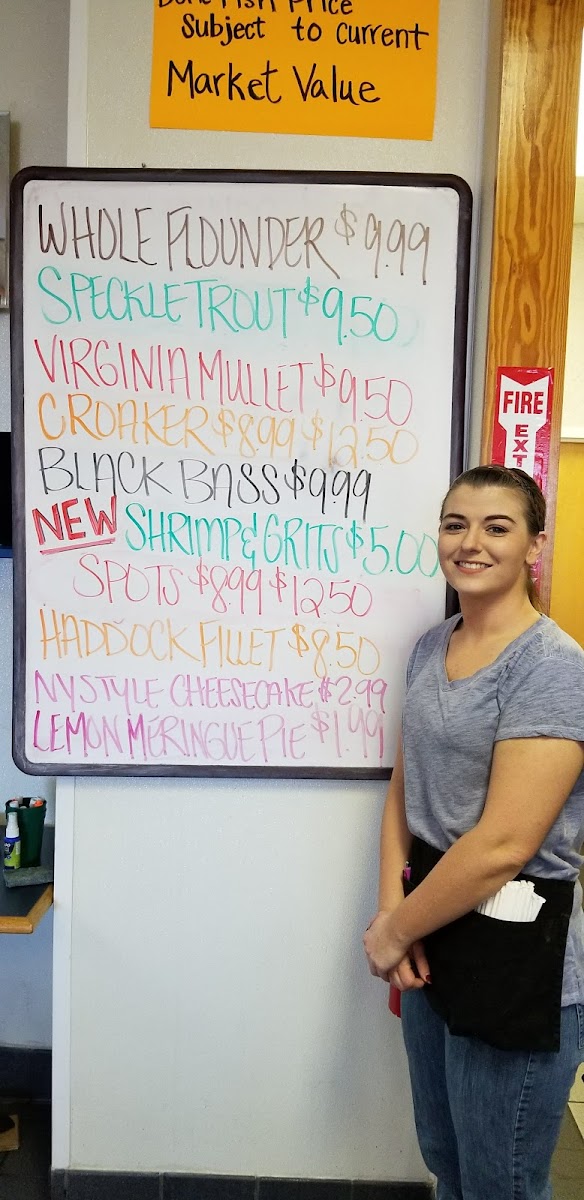 Bone Fish Price
Subject to current
Market Value
WHOLE FLOUNDER $9.99
SPECKLE TROUT $9.50
VIRGINIA MULLET $9.50
CROAKER $8.99 $12.50
BLACK BASS $9.99
NEW SHRIMP & GRITS $5.00
SPOTS $8.99 $12.50
HADDOCK FILLET $8.50
NY STYLE CHEESECAKE $2.99
LEMON MERINGUE PIE $1.99
FIRE
EXT